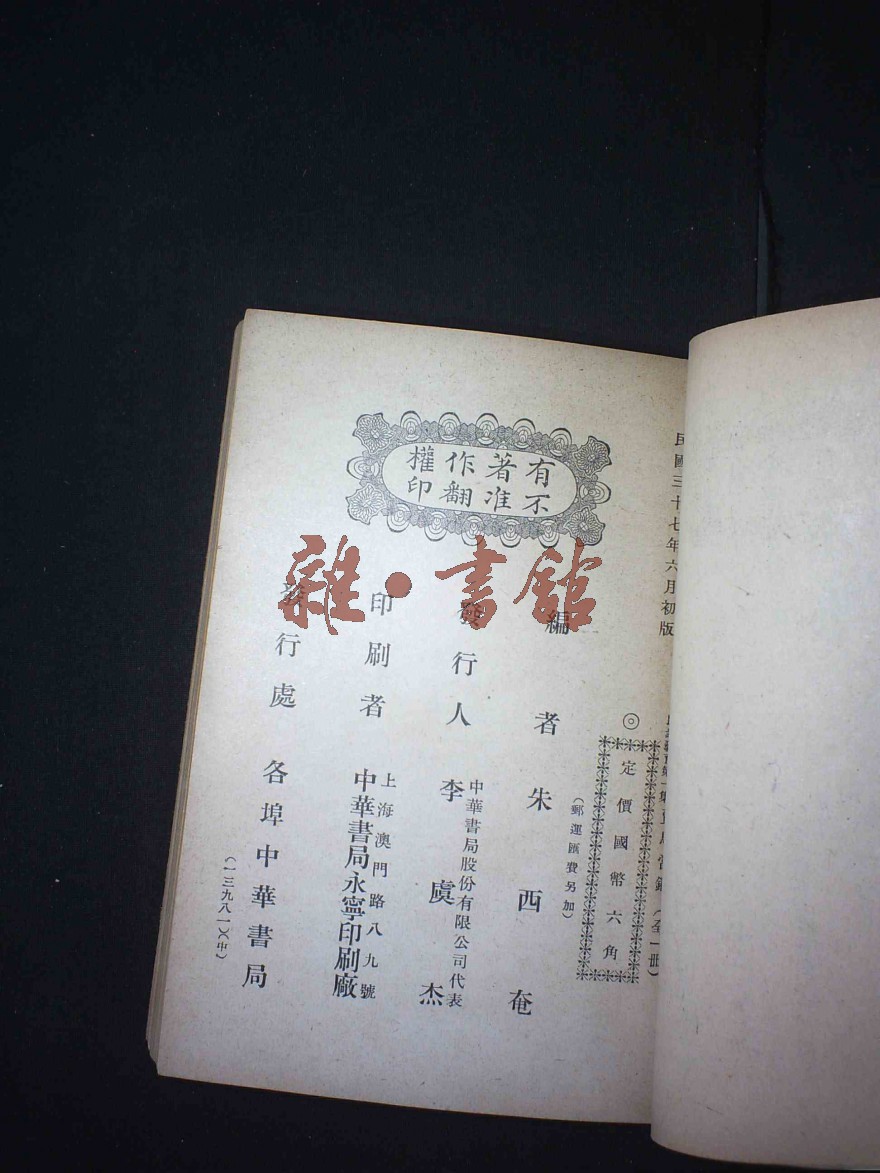 民國三十七年六月初版
民衆教育第一集
(全一册)
◎定價國幣六角
(郵運匯費另加)
有著作權
不准翻印
編者 朱西奄
發行人 李虞杰
中華書局股份有限公司代表
印刷者 中華書局永寧印刷廠
上海澳門路八九號
發行處 各埠中華書局
(一三九八一)(中)
雜·書館